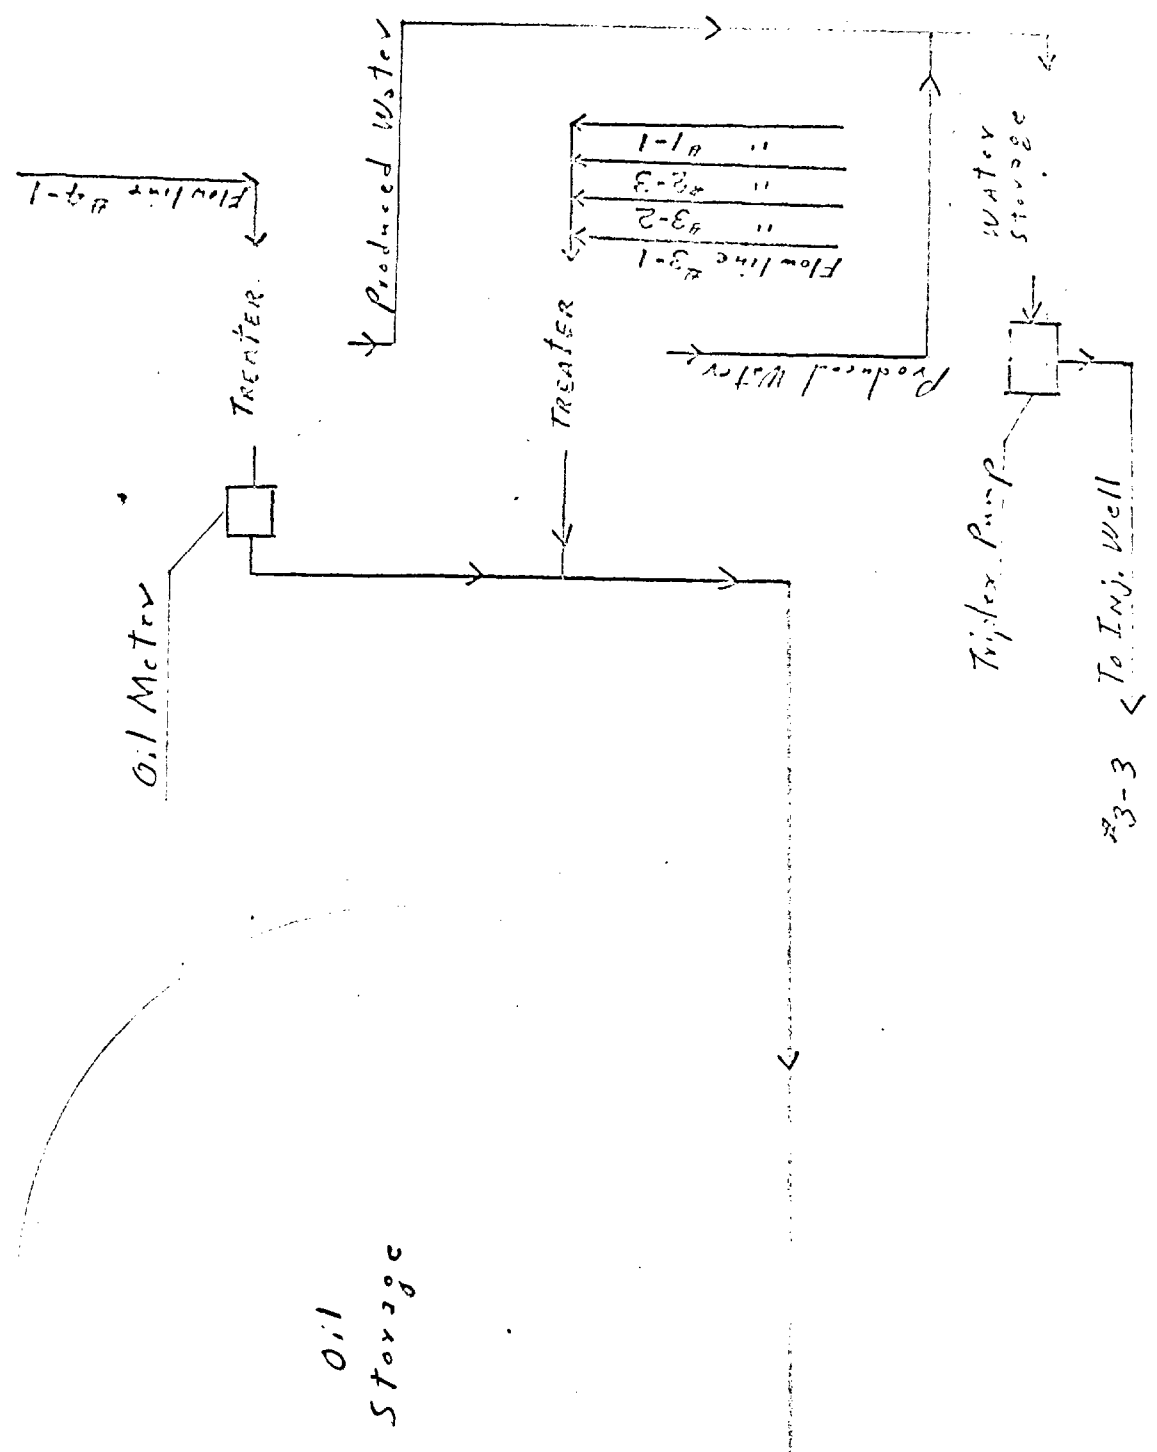 Flowline #4-1
TREATER
Oil Meter
Produced Water
" #1-1
" #2-3
" #3-2
Flowline #3-1
TREATER
Produced Water
Water
Storage
Triplex Pump
To Inj. Well
#3-3
Oil
Storage